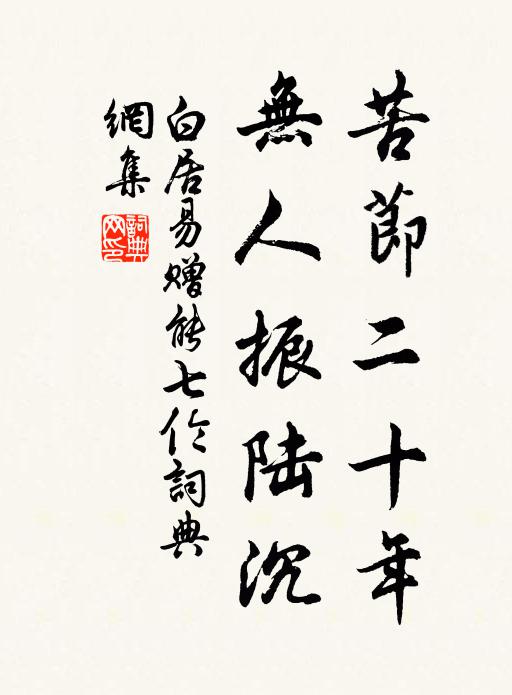 苦節二十年
無人振陆沉
白居易赠能七伦詞典
網集
詞典网印